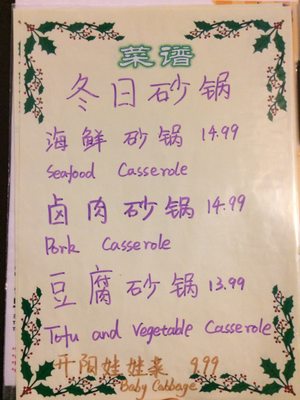 菜谱
冬日砂锅
海鲜砂锅 14.99
Seafood Casserole
卤肉砂锅 14.99
Pork Casserole
豆腐砂锅 13.99
Tofu and Vegetable Casserole
开阳娃娃菜 9.99
Baby Cabbage